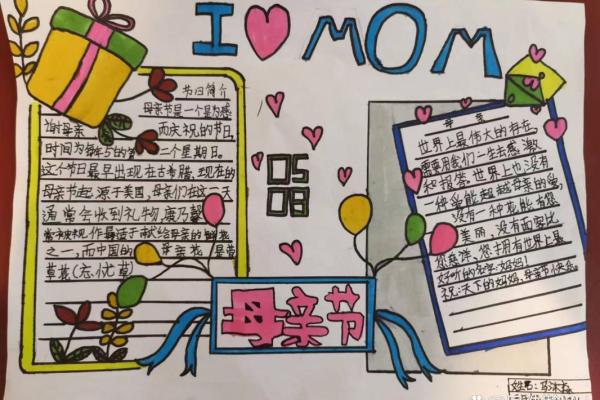 I MOM
节日简介
母亲节是一个是为感
谢母亲 而庆祝的节日,
时间为每年5的第 二个星期日。
这个节日最早出现在古希腊,现在的
母亲节起源于美国,母亲们在这一天
通常会收到礼物,康乃馨
常被视作最适于献给母亲的鲜花
之一,而中国的 母亲花 是萱
草花(忘忧草)
05
08
母亲
世界上最伟大的存在
需要我们一生去感激
和报答。世界上也没有
一种爱能超越母亲的爱,
没有一种花能有您
美丽,没有面容比
您慈祥,您拥有世界上最
好听的名字:妈妈!
祝:天下的妈妈,母亲节快乐。
母亲节
姓名: